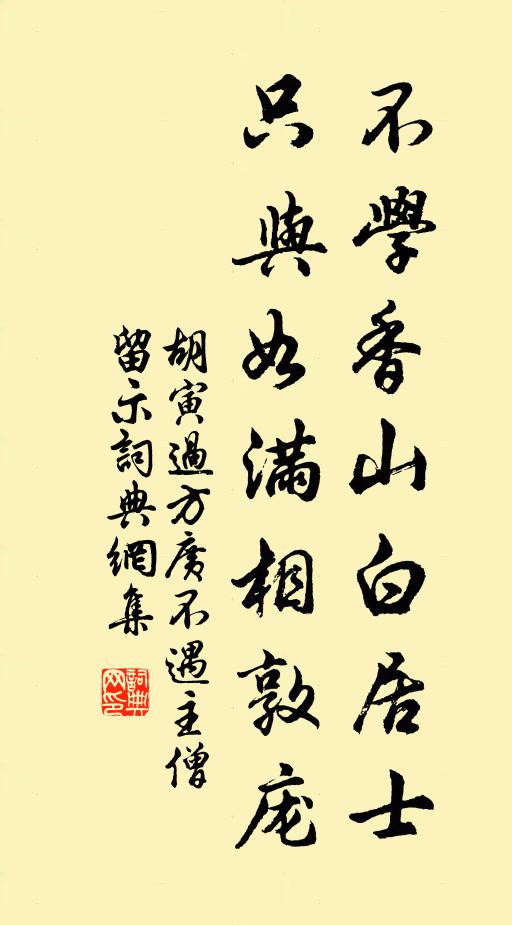 不學香山白居士
只與如滿相敦庞
胡寅過方廣不遇主僧
留示詞典網集
詞典
网印